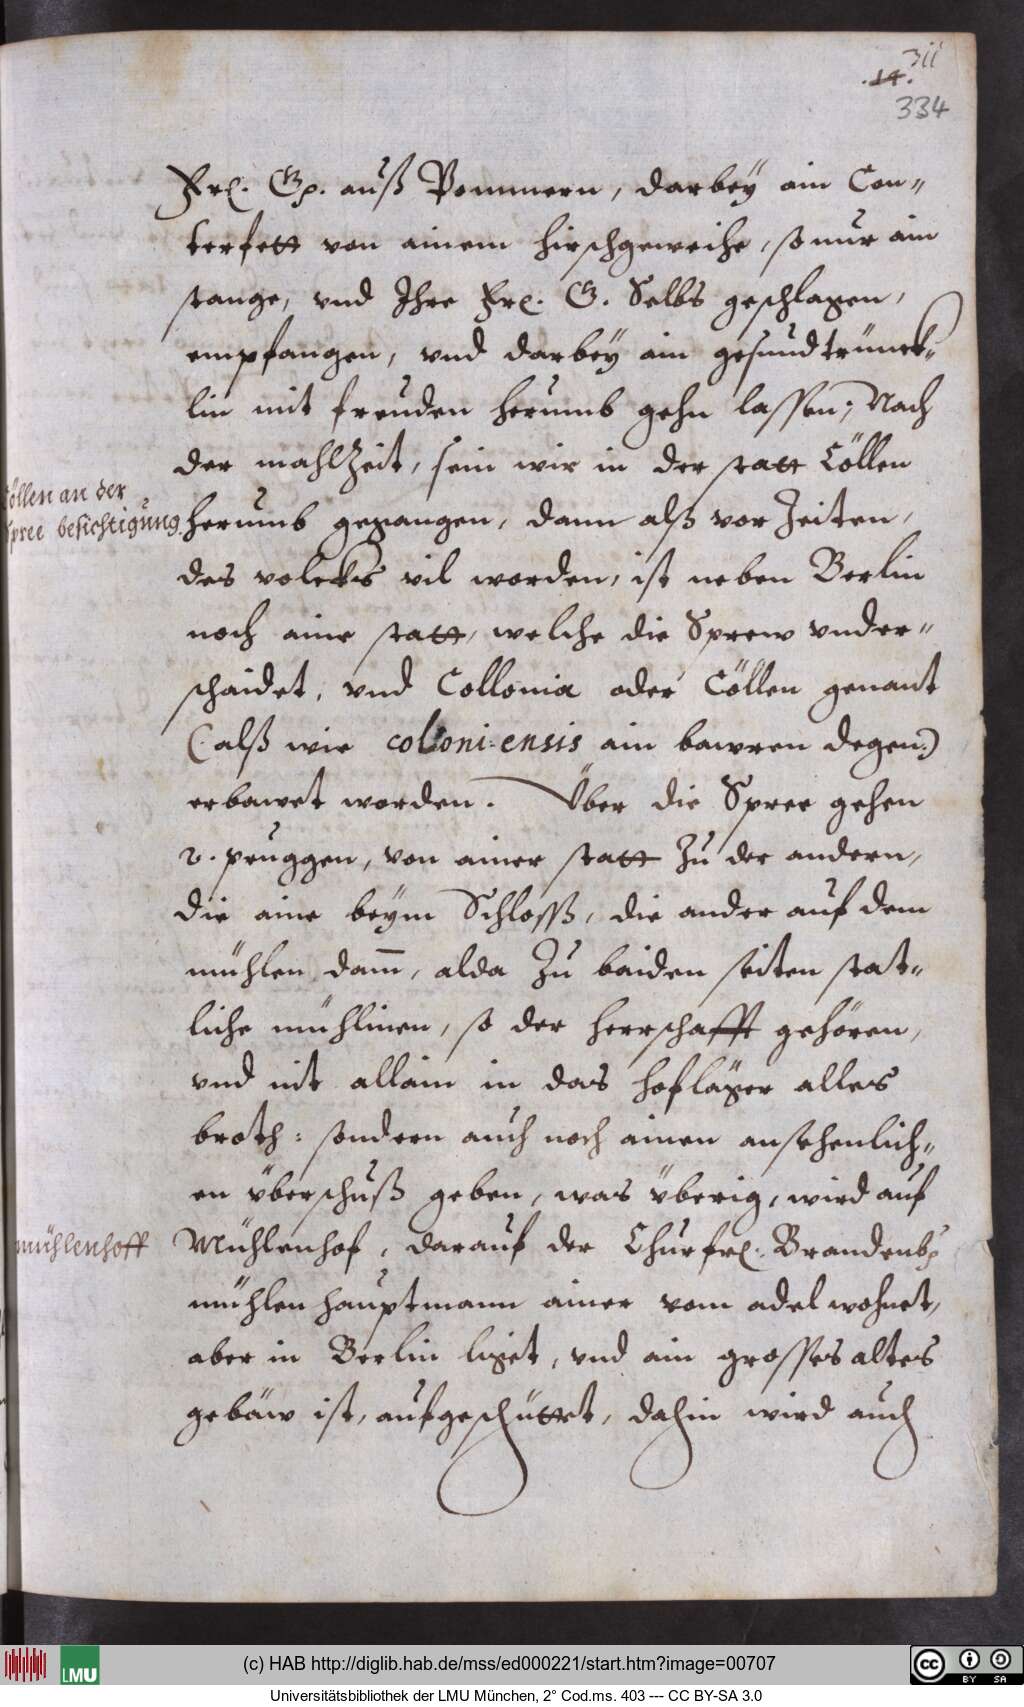 311
.14.
334
Frl. Gn. auß Pommern, darbeÿ ain Con-
terfett von ainem hirschgeweihe, so nur ain
stange, vnd Ihre Frl. G. Selbs geschlagen,
empfangen, vnd darbeÿ ain gesundtrünck-
lin mit freuden herumb gehn lassen; Nach
der mahlzeit, sein wir in der statt Cöllen
Cöllen an der
Spree besichtigung
herumb gegangen, dann alß vor Zeiten,
des volcks vil worden, ist neben Berlin
noch aine statt, welche die Sprew vnder-
schaidet, vnd Collonia oder Cöllen genant
(: alß wie coloni-ensis ain bawren degen:)
erbawet worden. Über die Spree gehen
2. pruggen, von ainer statt Zu der andern,
die aine beÿm Schloss, die ander auf dem
mühlen dam̅, alda Zu baiden seiten stat-
liche mühlinen, so der herrschafft gehören,
vnd nit allain in das hofläger alles
broth: sondern auch noch ainen ansehenlich-
en vberschuß geben, was vberig, wird auf
mühlenhoff
Mühlenhof, darauf der Churfrl. Brandenb.
mühlen hauptmann ainer vom adel wohnet,
aber in Berlin liget, vnd ain grosses altes
gebäw ist, aufgeschüttet, dahin wird auch
LMU
(c) HAB http://diglib.hab.de/mss/ed000221/start.htm?image=00707
CC BY SA
Universitätsbibliothek der LMU München, 2° Cod.ms. 403 --- CC BY-SA 3.0